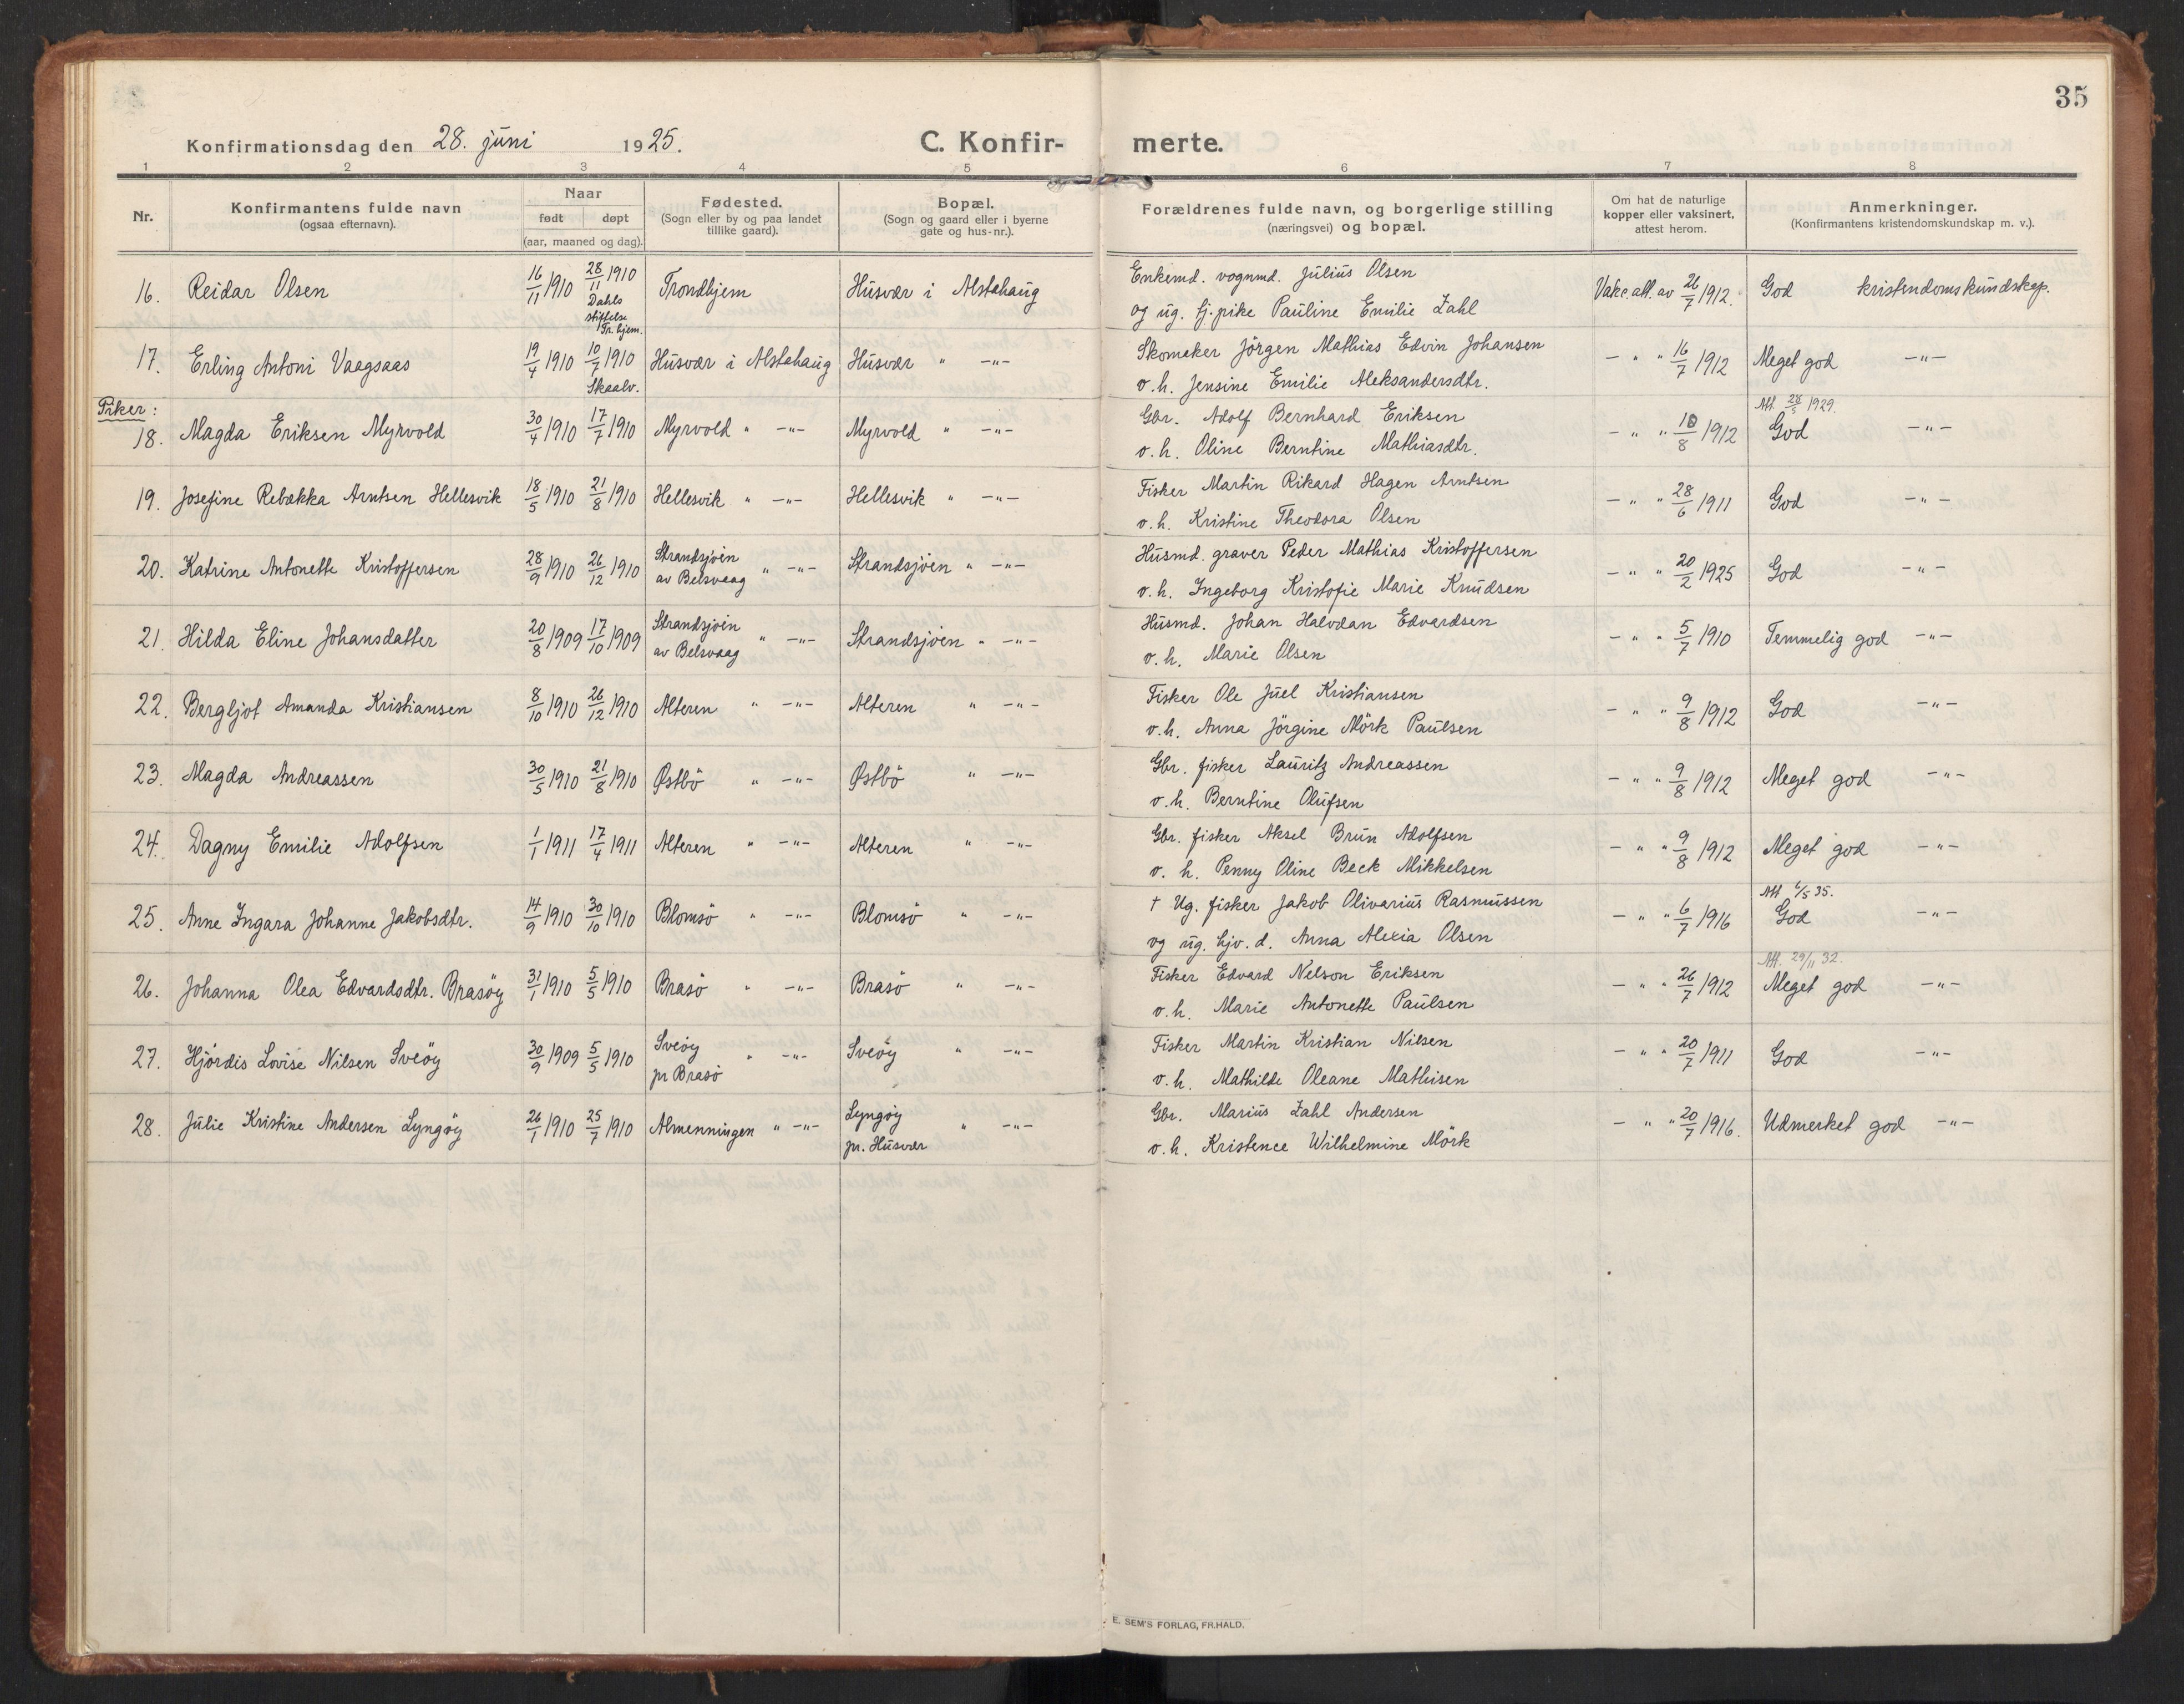 35
Konfirmationsdag den 28. juni 1925.
C. Konfir- merte.
1 2 3 4 5 6 7 8
Nr.
Konfirmantens fulde navn
(ogsaa efternavn).
Naar
født døpt
(aar, maaned og dag).
Fødested.
(Sogn eller by og paa landet
tillike gaard).
Bopæl.
(Sogn og gaard eller i byerne
gate og hus-nr.).
Forældrenes fulde navn, og borgerlige stilling
(næringsvei) og bopæl.
Om hat de naturlige
kopper eller vaksinert,
attest herom.
Anmerkninger.
(Konfirmantens kristendomskundskap m. v.).
16. Reidar Olsen 16/11 1910 28/11 1910 Dahls stiftelse Tr.hjem. Trondhjem Husvær i Alstahaug
Enkemd. vognmd. Julius Olsen
og ug. tj.pike Pauline Emilie Zahl
Vakc.att. av 26/7 1912. God kristendomskundskap.
17. Erling Antoni Vaagsaas 19/4 1910 10/7 1910 Skaalv. Husvær i Alstahaug Husvær " -"-
Skomaker Jörgen Mathias Edvin Johansen
o.h. Jensine Emilie Aleksandersdtr.
- " " 16/7 1912 Meget god -"-
Piker:
18. Magda Eriksen Myrvold 30/4 1910 17/7 1910 Myrvold " -"- Myrvold " -"-
Gbr. Adolf Bernhard Eriksen
o.h. Oline Berntine Mathiasdtr.
- " " 10/8 1912 Att 28/5 1929. God -"-
19. Josefine Rebækka Arntsen Hellesvik 18/5 1910 21/8 1910 Hellesvik " -"- Hellesvik " -"-
Fisker Martin Rikard Hagen Arntsen
o.h. Kristine Theodora Olsen
- " " 28/6 1911 God -"-
20. Katrine Antonette Kristoffersen 28/9 1910 26/12 1910 Strandsjöen av Belsvaag " -"- Strandsjöen " -"-
Husmd. graver Peder Mathias Kristoffersen
o.h. Ingeborg Kristofie Marie Knudsen
- " " 20/2 1925 God -"-
21. Hilda Eline Johansdatter 20/8 1909 17/10 1909 Strandsjöen av Belsvaag " -"- Strandsjöen " -"-
Husmd. Johan Halvdan Edvardsen
o.h. Marie Olsen
- " " 5/7 1910 Temmelig god -"-
22. Bergljot Amanda Kristiansen 8/10 1910 26/12 1910 Alteren " -"- Alteren " -"-
Fisker Ole Juel Kristiansen
o.h. Anna Jörgine Mörk Paulsen
- " " 9/8 1912 God -"-
23. Magda Andreassen 30/5 1910 21/8 1910 Østbö " -"- Østbö " -"-
Gbr. fisker Lauritz Andreassen
o.h. Berntine Olufsen
- " " 9/8 1912 Meget god -"-
24. Dagny Emilie Adolfsen 1/1 1911 17/4 1911 Alteren " -"- Alteren " -"-
Gbr. fisker Aksel Brun Adolfsen
o. h. Penny Oline Beck Mikkelsen
- " " 9/8 1912 Meget god -"-
25. Anne Ingara Johanne Jakobsdtr. 14/9 1910 30/10 1910 Blomsö " -"- Blomsö " -"-
† Ug. fisker Jakob Olivarius Rasmussen
og ug. hjv. d. Anna Alexia Olsen
- " " 6/7 1916 God -"-
26. Johanna Olea Edvardsdtr. Brasöy 31/1 1910 5/5 1910 Brasö " -"- Brasö " -"-
Fisker Edvard Nelson Eriksen
o.h. Marie Antonette Paulsen
- " " 26/7 1912 Att. 29/11 32. Meget god -"-
27. Hjördis Lovise Nilsen Sveöy 30/9 1909 5/5 1910 Sveöy pr Brasö " -"- Sveöy " -"-
Fisker Martin Kristian Nilsen
o.h. Mathilde Oleane Mathisen
- " " 20/7 1911 God -"-
28. Julie Kristine Andersen Lyngöy 26/1 1910 25/7 1910 Almenningen " -"- Lyngöy pr. Husvær " -"-
Gbr. Marius Zahl Andersen
o.h. Kristence Wilhelmine Mörk
- " " 20/7 1916. Udmerket god -"-
E. SEM'S FORLAG, FR.HALD.